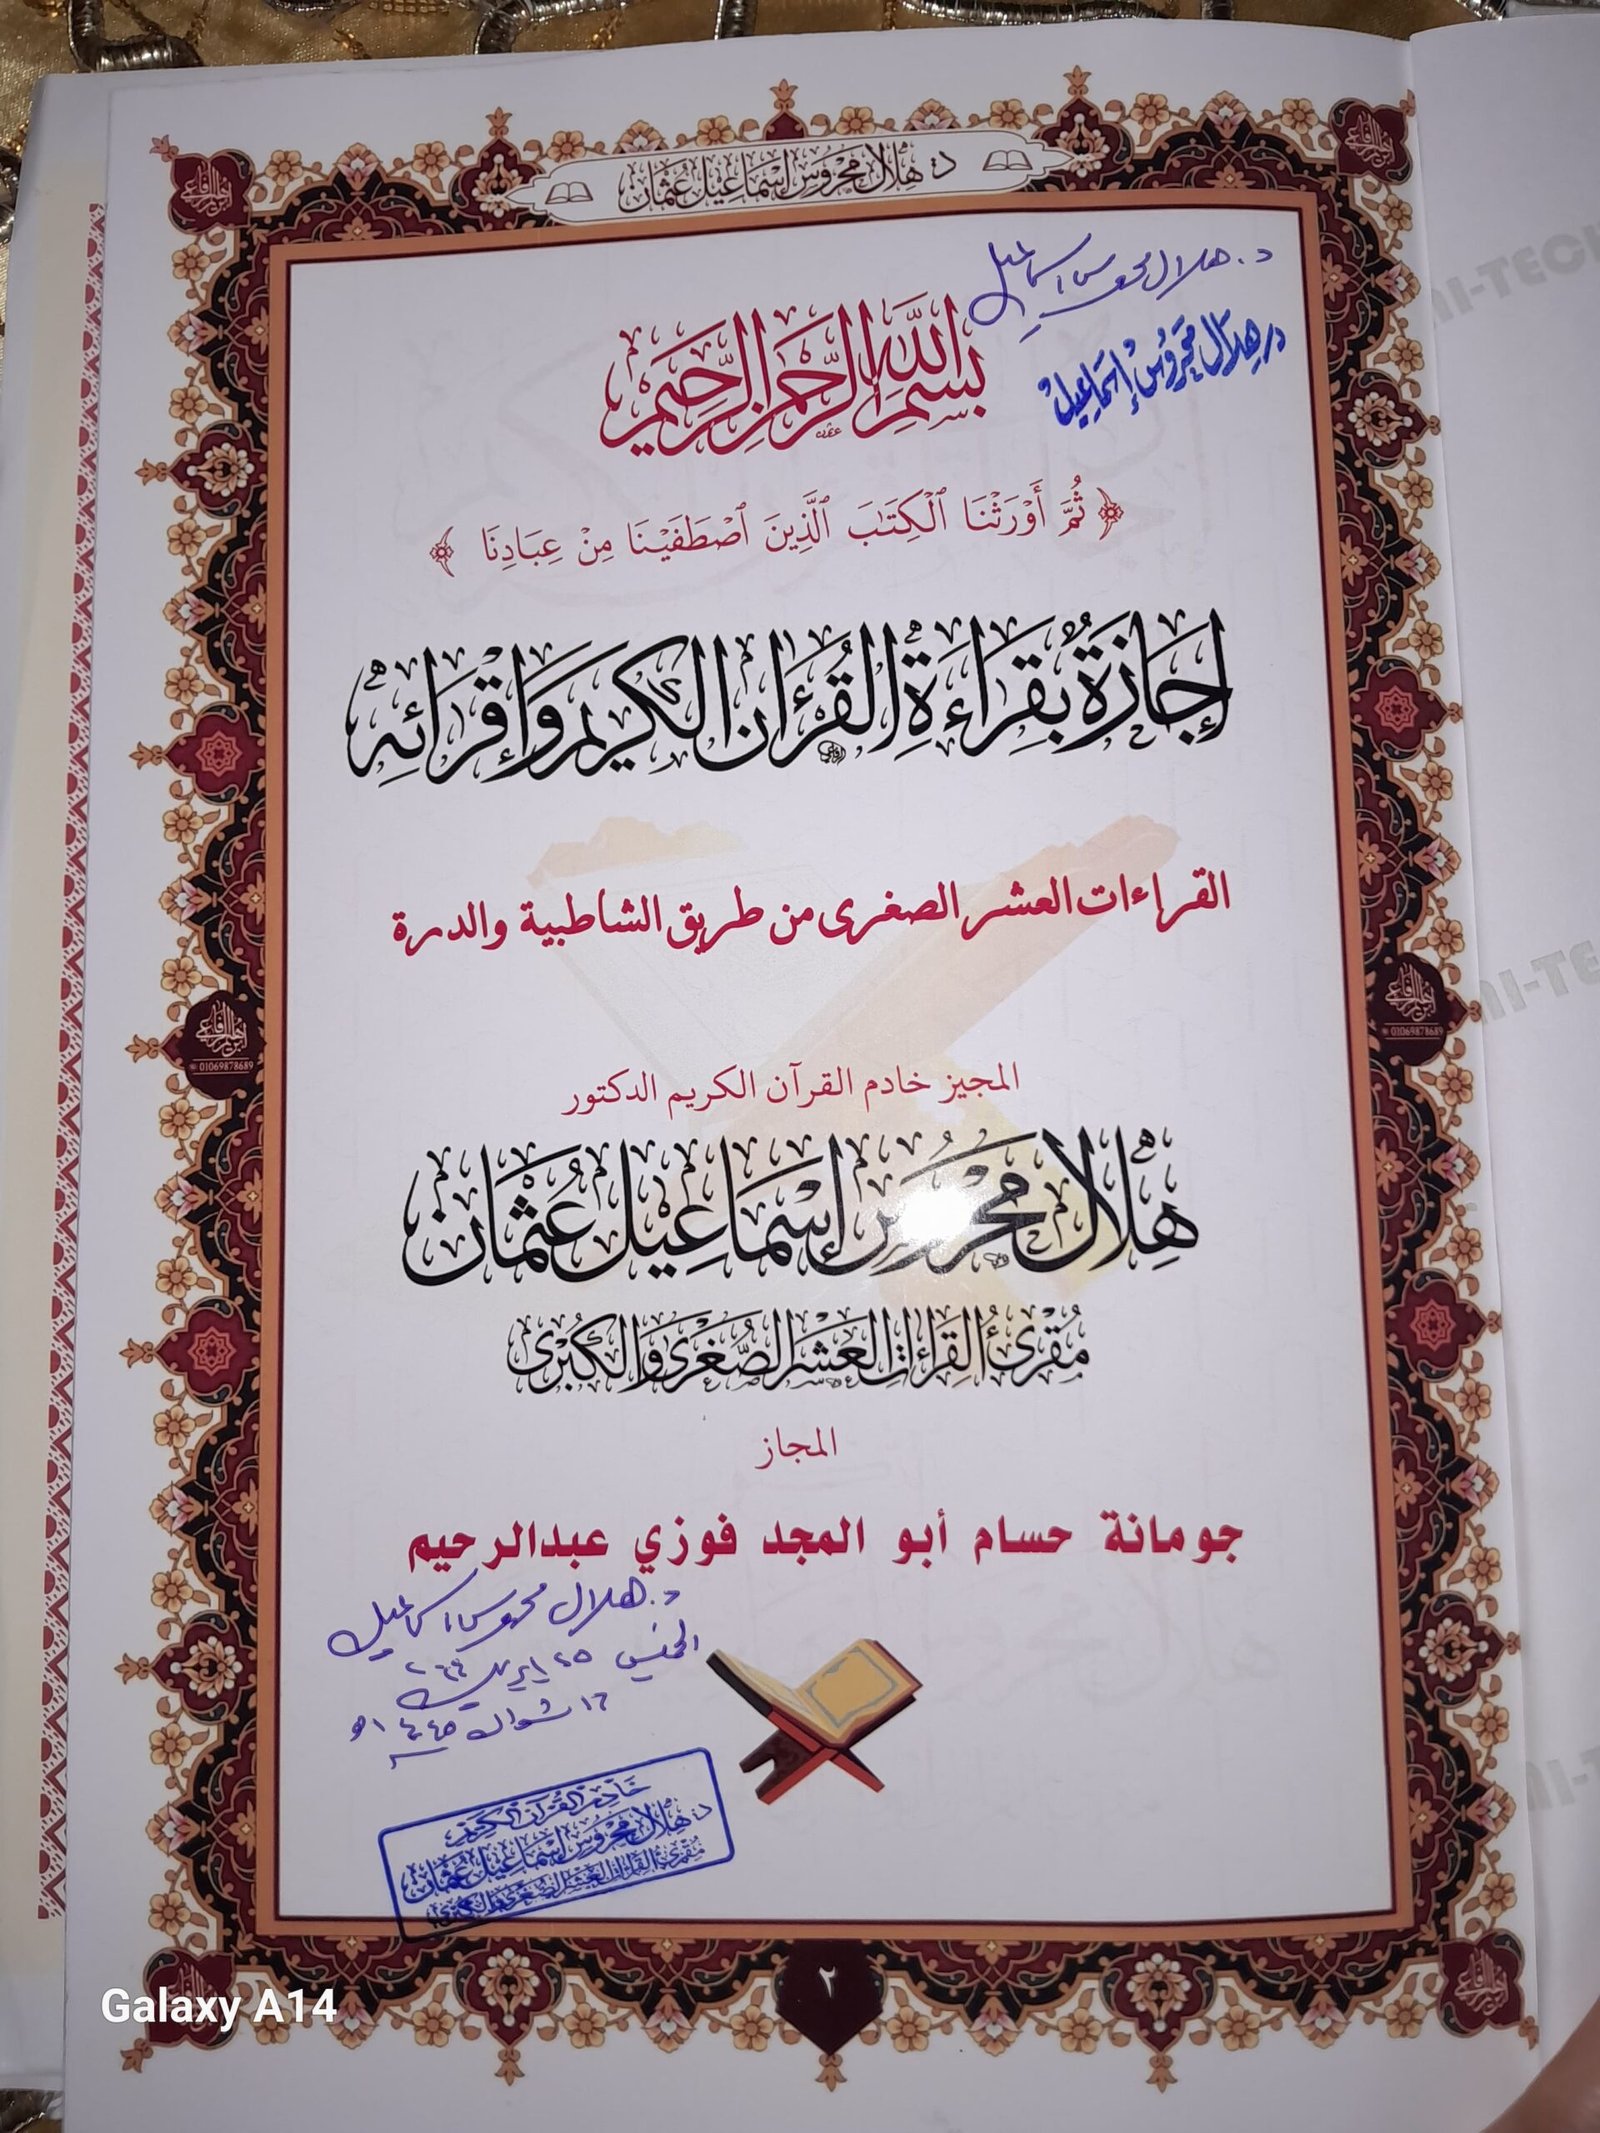 د. هلال محروس إسماعيل عثمان
د. هلال محروس اسماعيل
د. هلال محروس إسماعيل
بسم الله الرحمن الرحيم
﴿ ثُمَّ أَوْرَثْنَا ٱلْكِتَٰبَ ٱلَّذِينَ ٱصْطَفَيْنَا مِنْ عِبَادِنَا ﴾
إِجَازَةٌ بِقِرَاءَةِ القُرْءَانِ الكَرِيمِ وَإِقْرَائِهِ
القراءات العشر الصغرى من طريق الشاطبية والدرة
المجيز خادم القرآن الكريم الدكتور
هِلَال مَحْرُوس إِسْمَاعِيل عُثْمَان
مُقْرِئُ القِرَاءَاتِ العَشْرِ الصُّغْرَى وَالكُبْرَى
المجاز
جومانة حسام أبو المجد فوزي عبدالرحيم
د. هلال محروس اسماعيل
الخميس ٢٥ ابريل ٢٠٢٤
١٦ شوال ١٤٤٥ هـ
خادم القرآن الكريم
د. هلال محروس إسماعيل عثمان
مقرئ القراءات العشر الصغرى والكبرى
01069878689
01069878689
٢
Galaxy A14